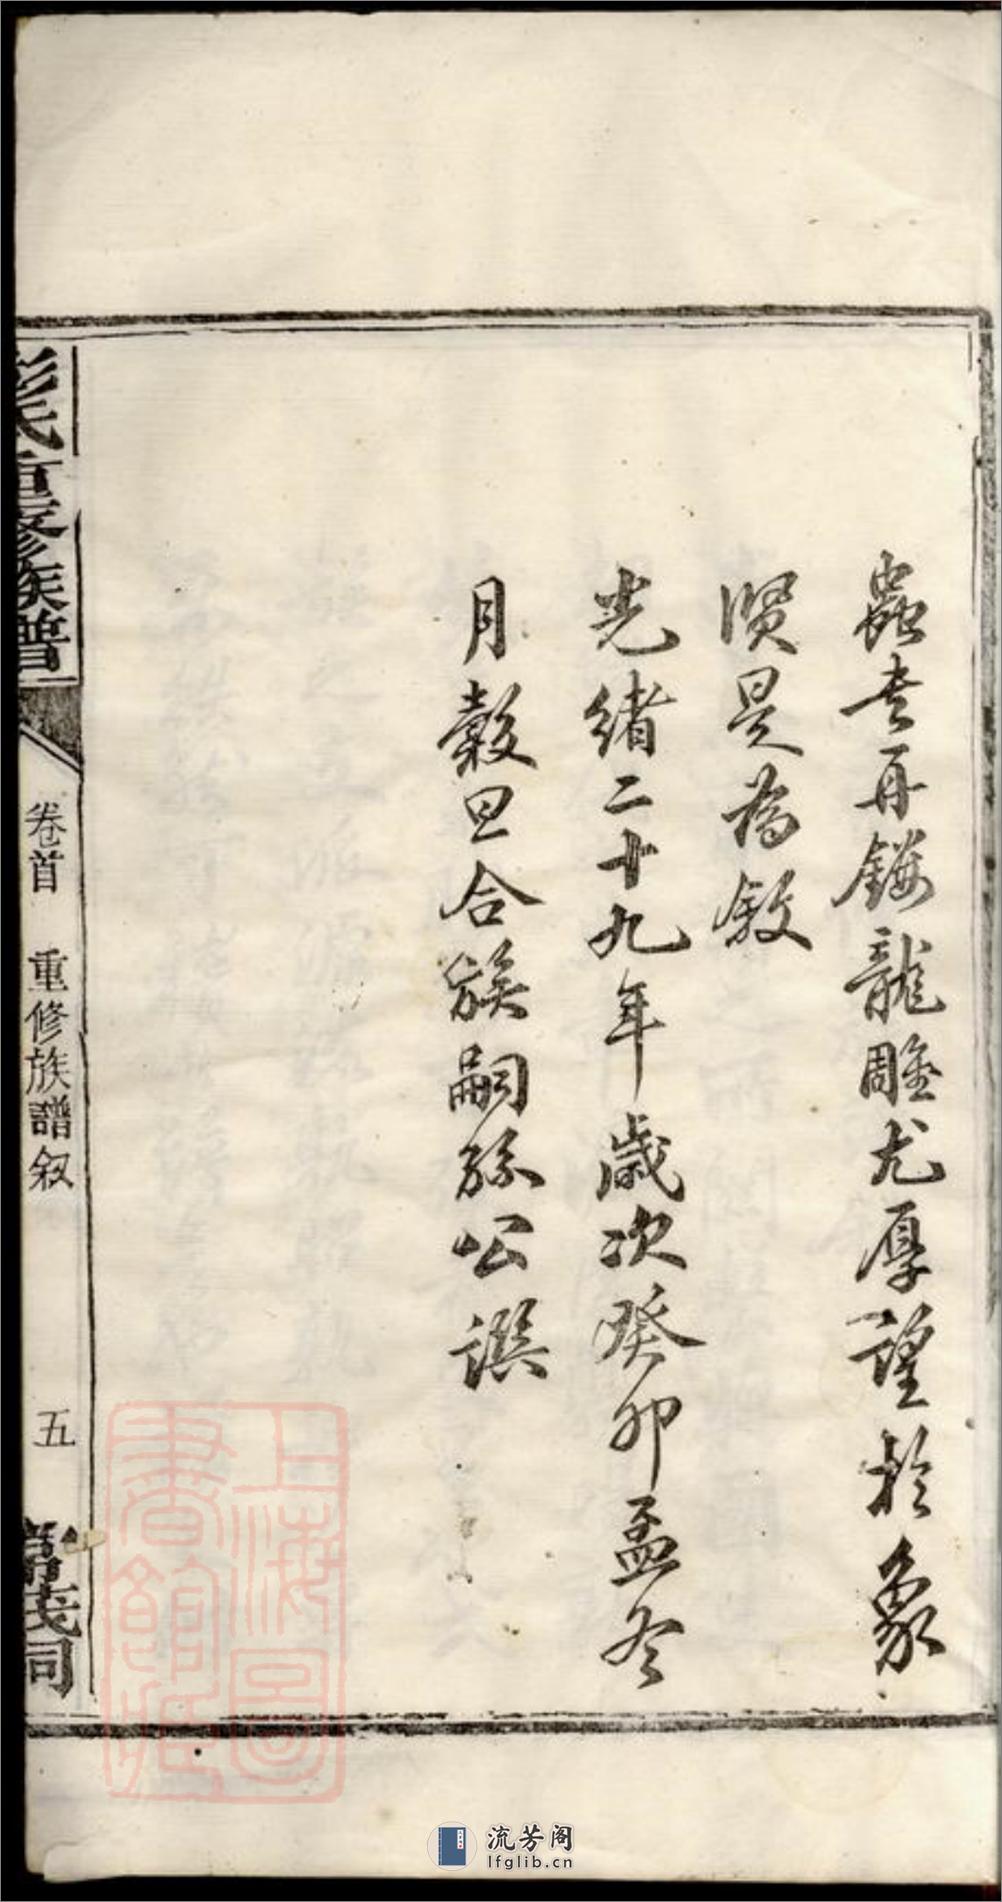 蠡吏再鏤龍雕尤厚望於象
賢是為敘
光緒二十九年歲次癸卯孟冬
月穀旦合族嗣孫公譔
彭氏重修族譜
卷首 重修族譜叙 五
上海圖書館藏
流芳阁
lfglib.cn